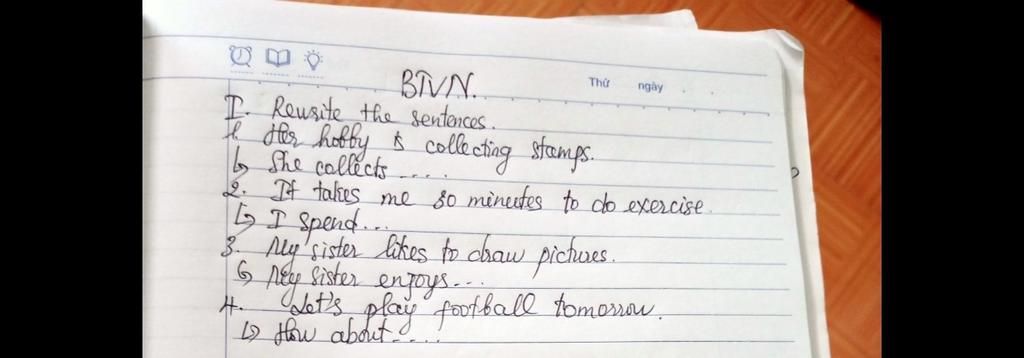 BTVN.
Thứ ngày
I. Rewrite the sentences.
1. Her hobby is collecting stamps.
↳ She collects ....
2. It takes me 30 minutes to do exercise.
↳ I spend...
3. My sister likes to draw pictures.
↳ My sister enjoys...
4. Let's play football tomorrow.
↳ How about....